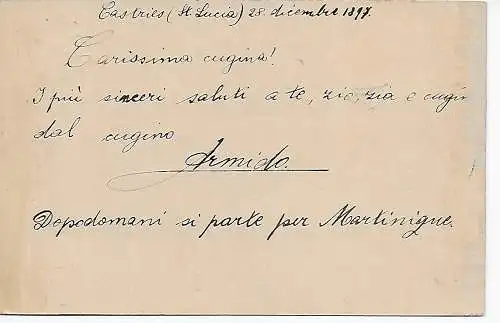 Castries (St. Lucia) 28 dicembre 1897.
Carissima cugina!
I più sinceri saluti a te, zio, zia e cugin
dal cugino
Armido.
Dopodomani si parte per Martinigue.